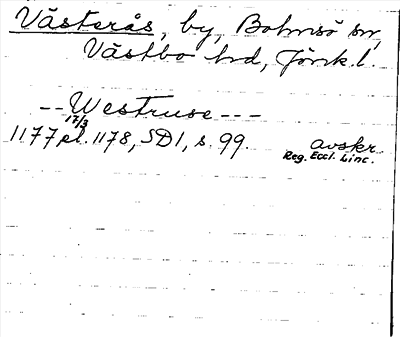 Västerås, by, Bolmsö sn,
Västbo hd, Jönk.l.
-- Westruse ---
17/3
1177 el. 1178, SD1, s. 99. avskr.
Reg. Eccl. Linc.